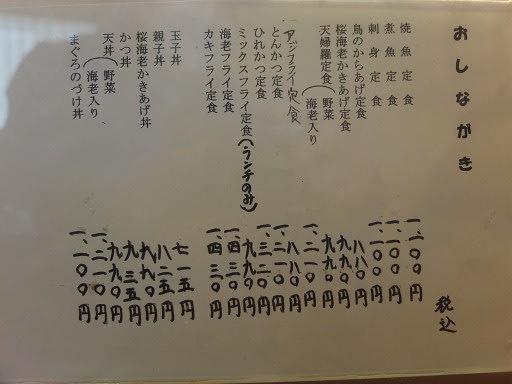 おしながき
焼魚定食 一、一〇〇円
煮魚定食 一、一〇〇円
刺身定食 一、一〇〇円
鳥のからあげ定食 八八〇円
桜海老かきあげ定食 九九〇円
天婦羅定食(野菜 九九〇円
海老入り 一、二一〇円
アジフライ定食 八八〇円
とんかつ定食
ひれかつ定食 一、三二〇円
ミックスフライ定食(ランチのみ)
海老フライ定食 一、四三〇円
カキフライ定食 一、四三〇円
玉子丼 七一五円
親子丼 八二五円
桜海老かきあげ丼 九九〇円
かつ丼 九三五円
天丼(野菜 九九〇円
海老入り 一、二一〇円
まぐろのづけ丼 一、一〇〇円
税込